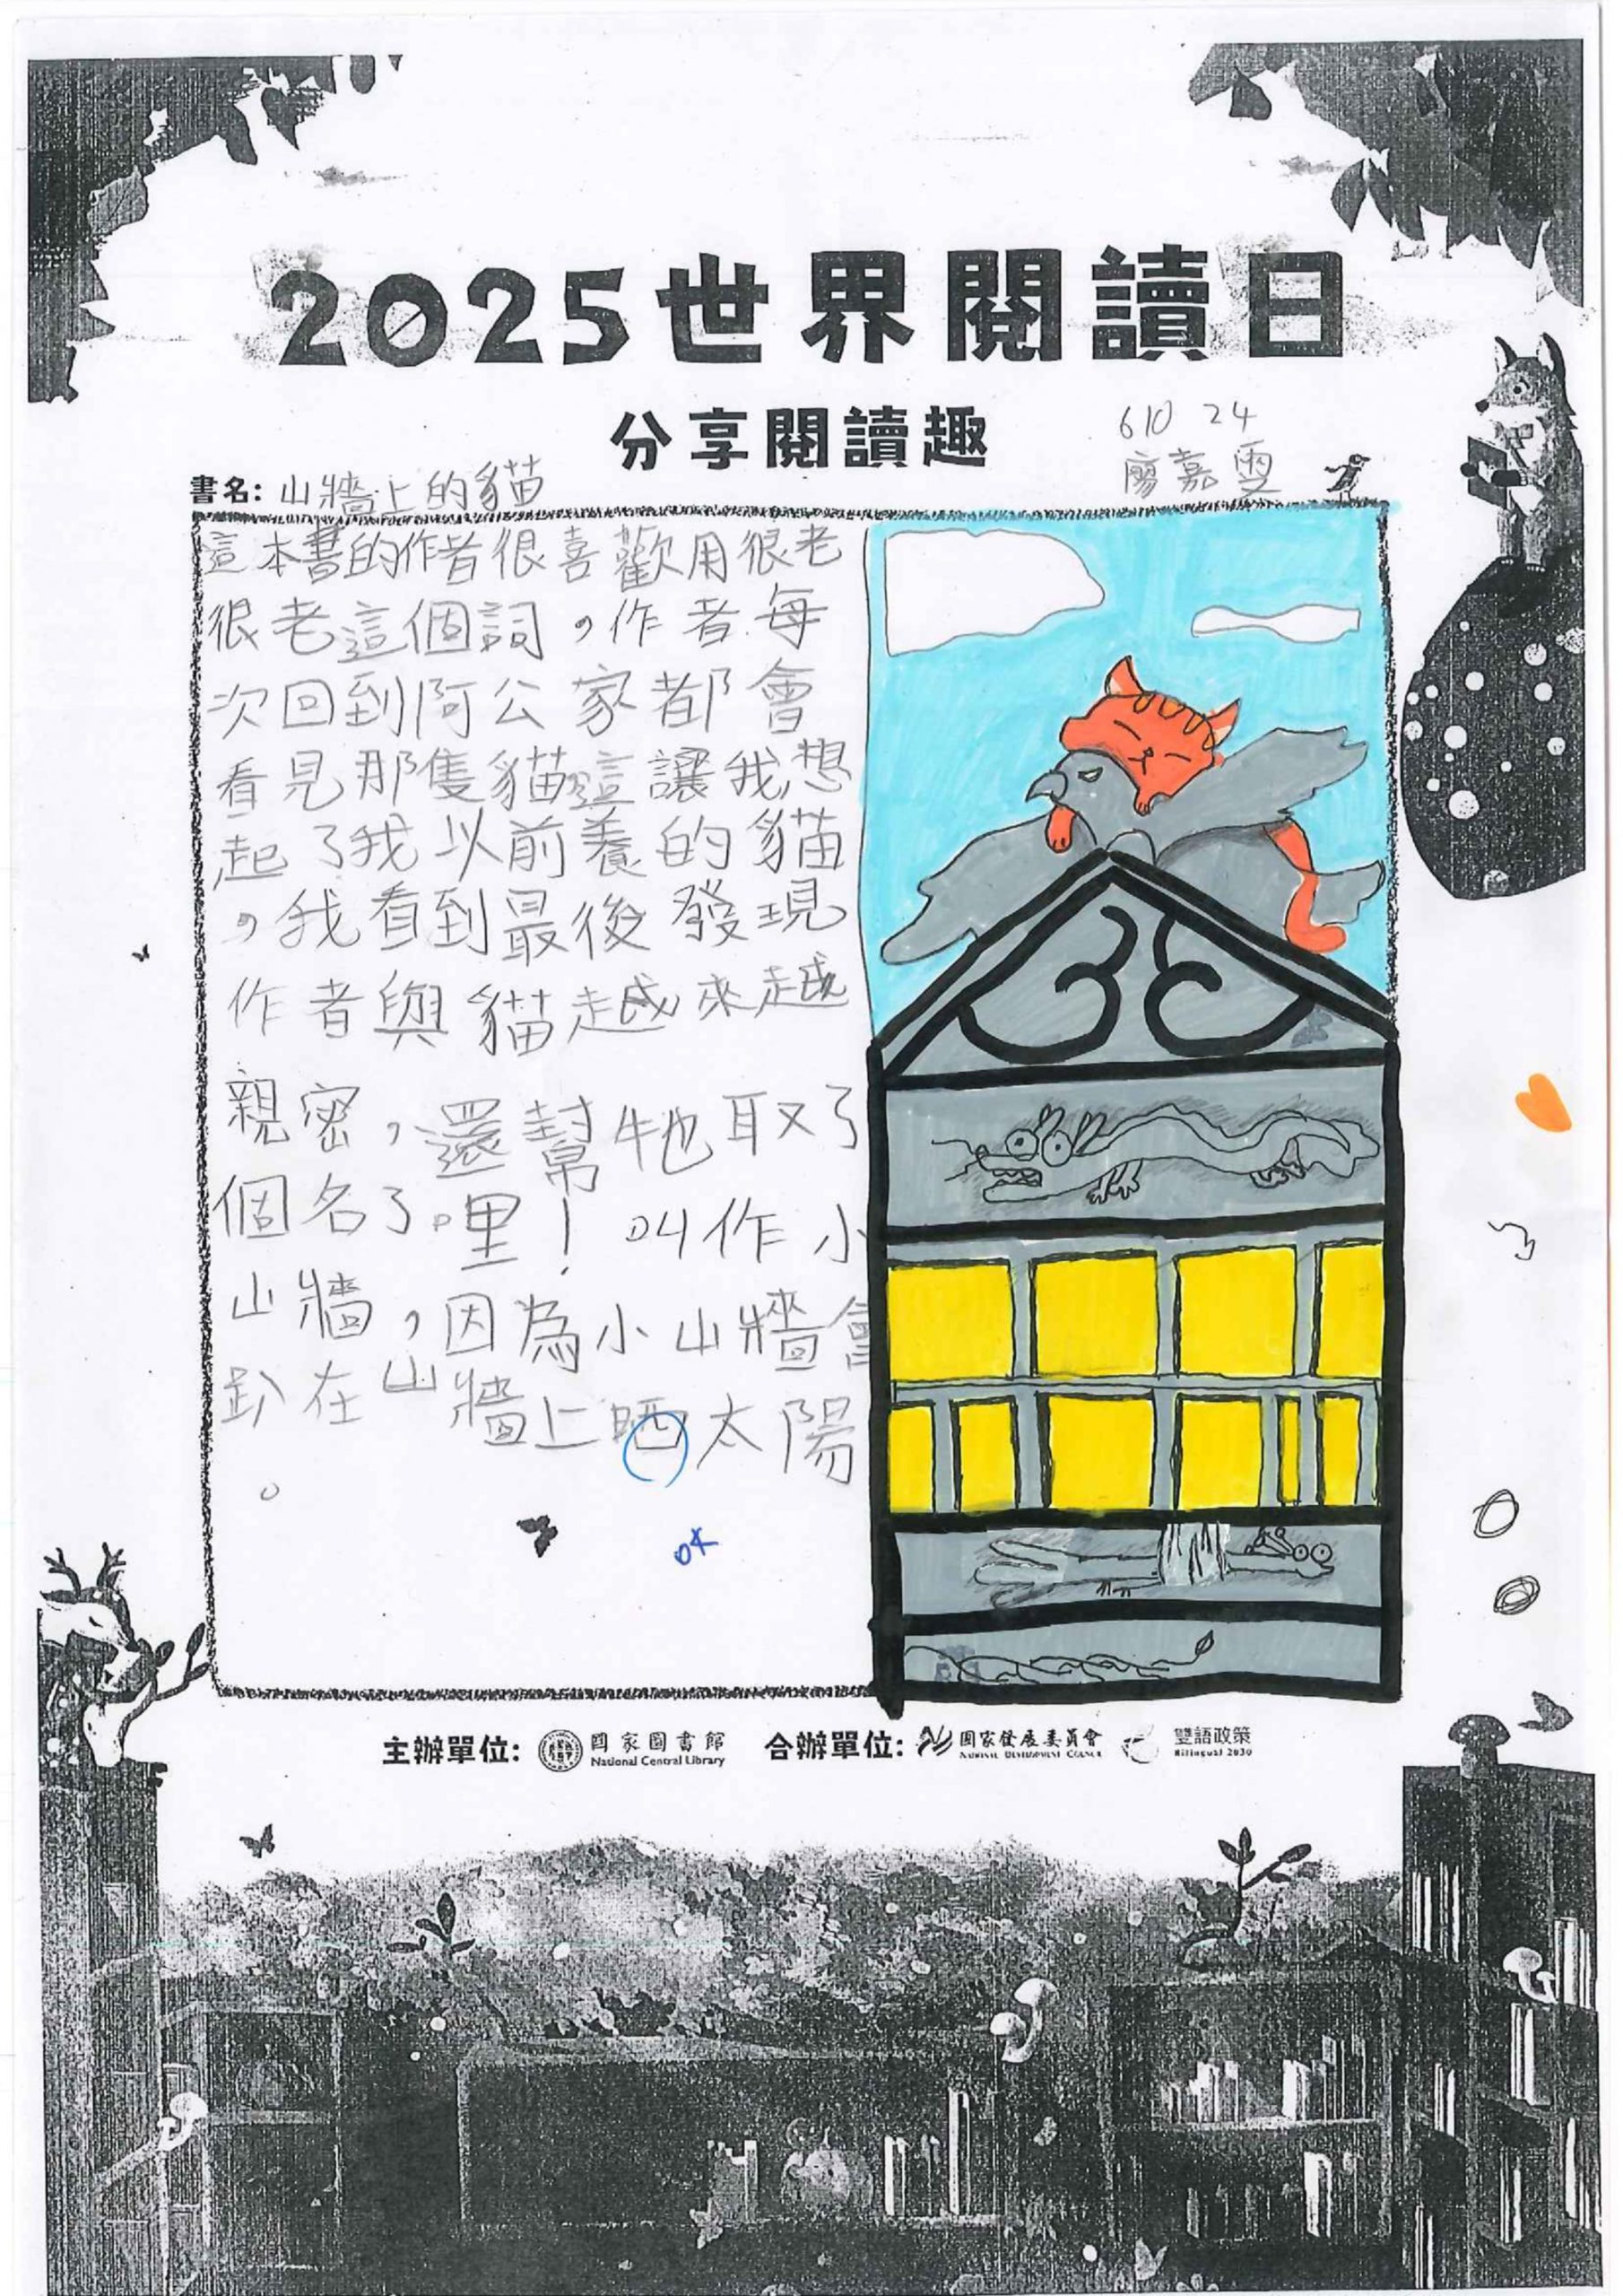 2025世界閱讀日
分享閱讀趣
610 24
廖嘉雯
書名: 山牆上的貓
這本書的作者很喜歡用很老
很老這個詞,作者每
次回到阿公家都會
看見那隻貓這讓我想
起了我以前養的貓
,我看到最後發現
作者與貓越來越
親密,還幫牠取了
個名了哩!叫作小
山牆,因為小山牆會
趴在山牆上晒太陽
。
ok
主辦單位: 國家圖書館 National Central Library 合辦單位: 國家發展委員會 NATIONAL DEVELOPMENT COUNCIL 雙語政策 Bilingual 2030